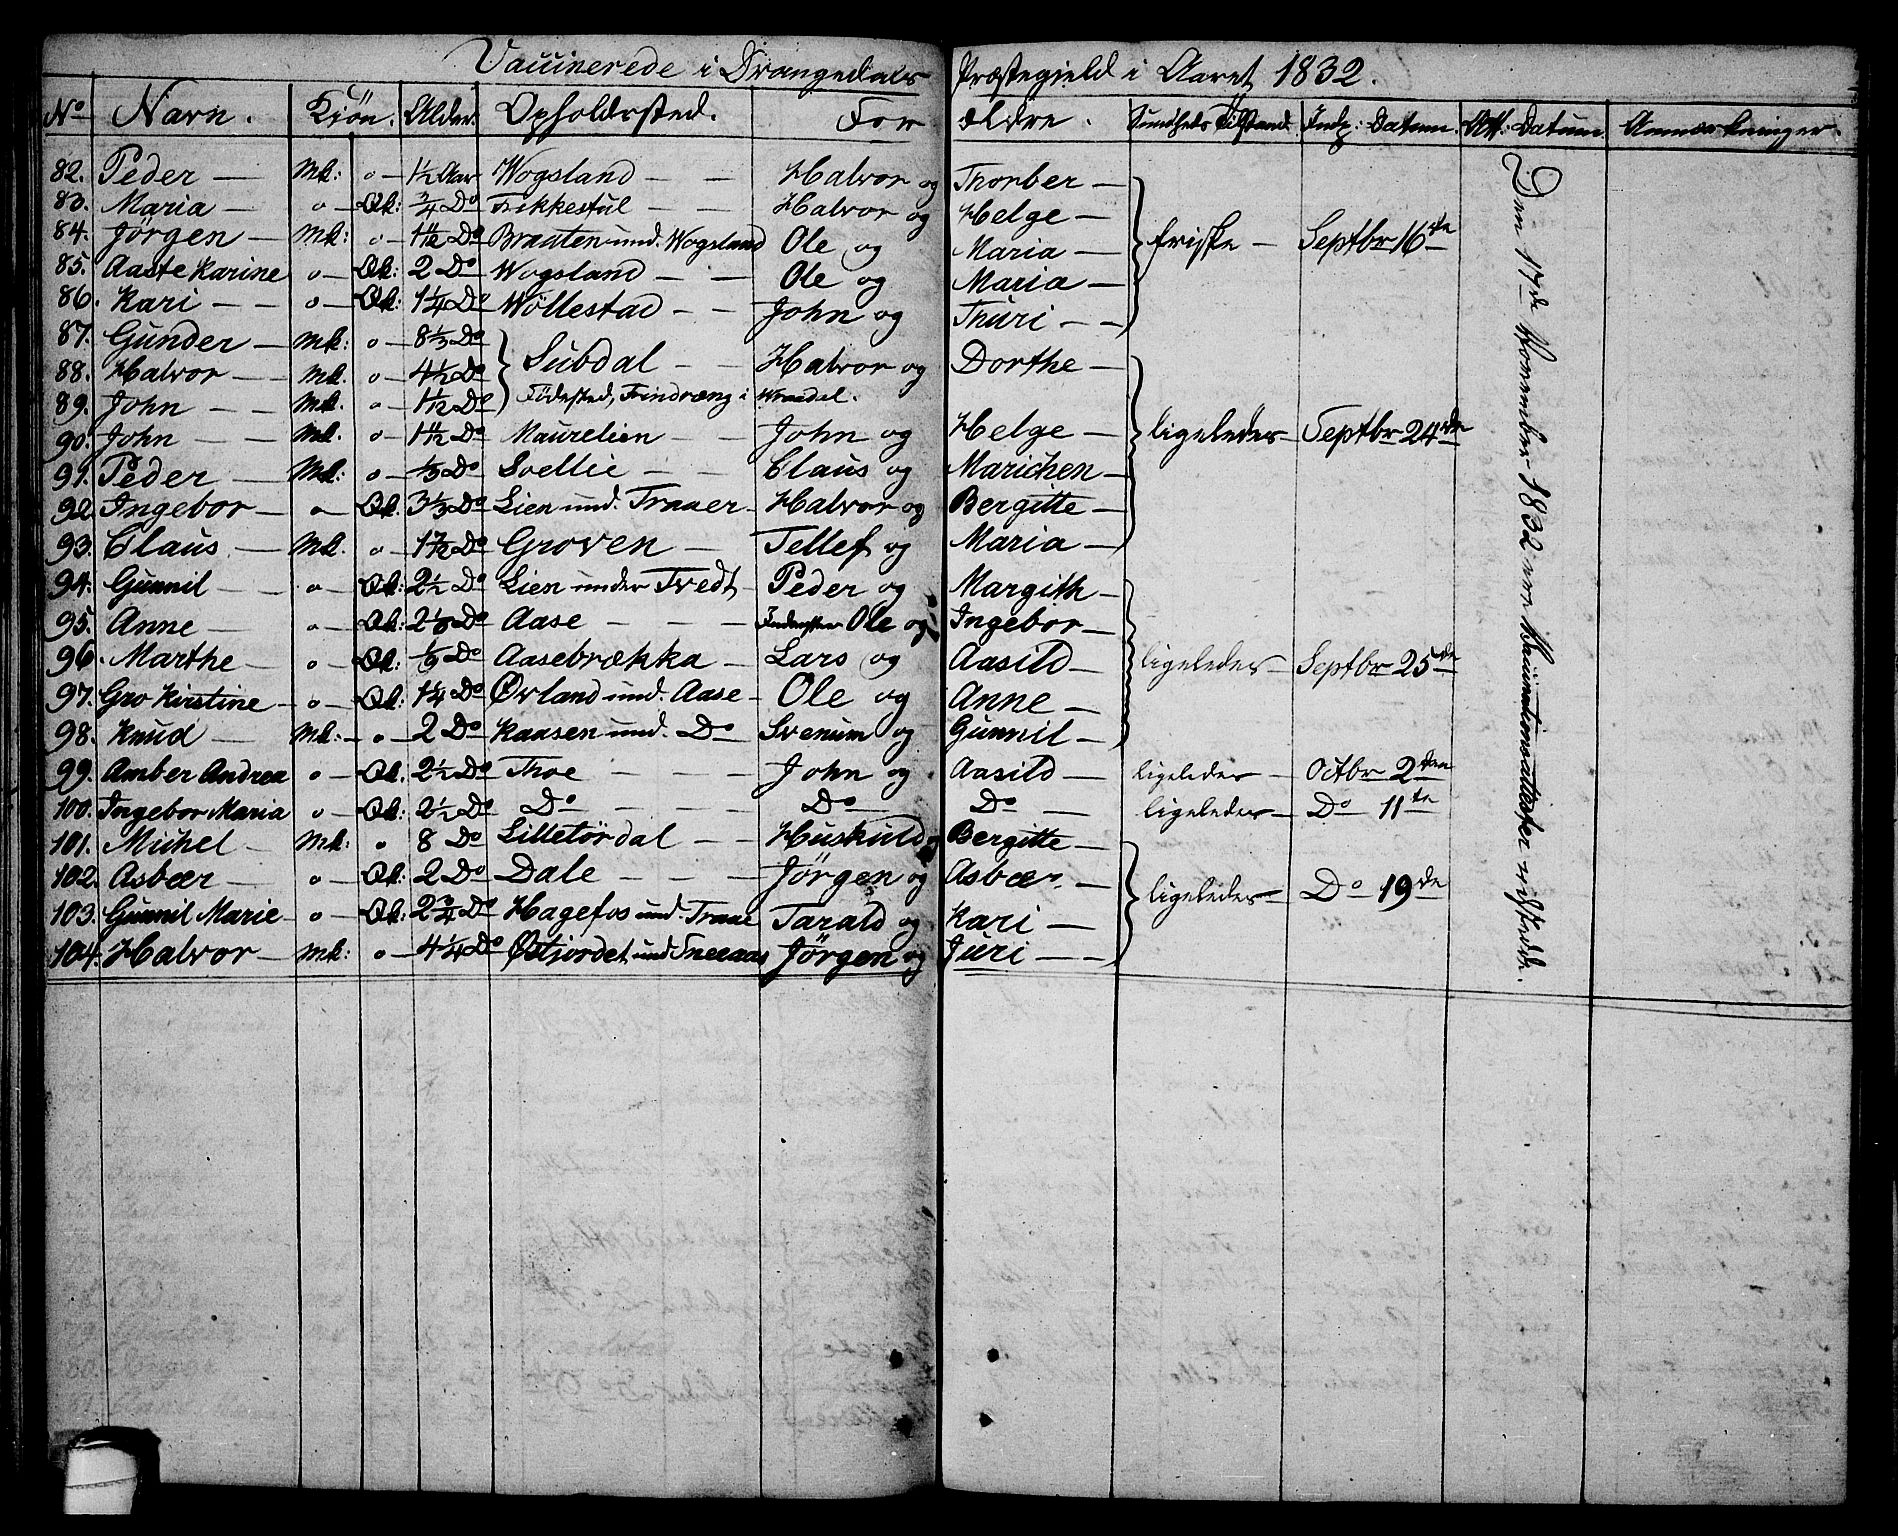 Vaccinerede i Drangedals Præstegjeld i Aaret 1832.
No Navn. Kjön. Alder. Opholdssted. Forældre. Sundheds Tilstand. Indp: Datum. Att: Datum. Anmærkninger.
82. Peder — Mk: o — 1½ Aar Wogsland — — Halvor og Thorber —
83. Maria — o — Qk: ¾ Do Trikkestul — Halvor og Helge —
84. Jörgen — Mk: o — 1 11/12 Do Braaten und. Wogsland Ole og Maria — friske — Septbr 16de
85. Aaste Karine o — Qk: 2 Do Wogsland — — Ole og Maria —
86. Kari — — o — Qk: 1¼ Do Wöllestad — — John og Thuri — —
87. Gunder — Mk: o — 8⅓ Do
Subdal — Halvor og Dorthe —
88. Halvor — Mk. o — 4½ Do
89. John — — Mk. o — 1 1/12 Do Födested, i Wraadal.
90. John — — Mk. o — 1 11/12 Do Maurelien — — John og Helge — ligeledes — Septbr 24de
91. Peder — Mk: o — ⅓ Do Soellie — — Claus og Marichen —
92. Ingebor — o — Qk. 3⅓ Do Lien und. Traaer — Halvor og Bergitte —
93. Claus — Mk. o — 1 7/12 Do Groven — Tellef og Maria —
94. Gunnil — o — Qk: 2½ Do Lien under Tvedt — Peder og Margith —
95. Anne — o — Qk: Do Aase — — — Ole og Ingebor —
96. Marthe — o — Qk: Do Aasebrækka — Lars og Aasild — ligeledes — Septbr 25de
97. Gro Kirstine — o — Qk: 1¼ Do Ørland und. Aase — Ole og Anne —
98. Knud — Mk: — o — 2 Do Kaasen und. Do — Svenum og Gunnil —
99. Amber Andrea o — Qk. 2½ Do Thoe — — — John og Aasild — ligeledes — Octbr 2den
100. Ingebor Maria o — Qk: 2½ Do Do — — — Do — Do — ligeledes — Do — 11te
101. Michel — Mk: o 8 Do Lilletördal — — Huskuld og Bergitte —
102. Asbær — o — Qk: 2 Do Dale — — — Jörgen og Asbær. — ligeledes — Do 19de
103. Gunnil Marie — o — Qk: 2¾ Do Hagefos und. Traae Tarald og Kari —
104. Halvor — Mk: o — 4¼ Do Østjordet und Sneeaas Jörgen og Juri — —
Den 17de November 1832 ere Vaccinationsattester udstædte.